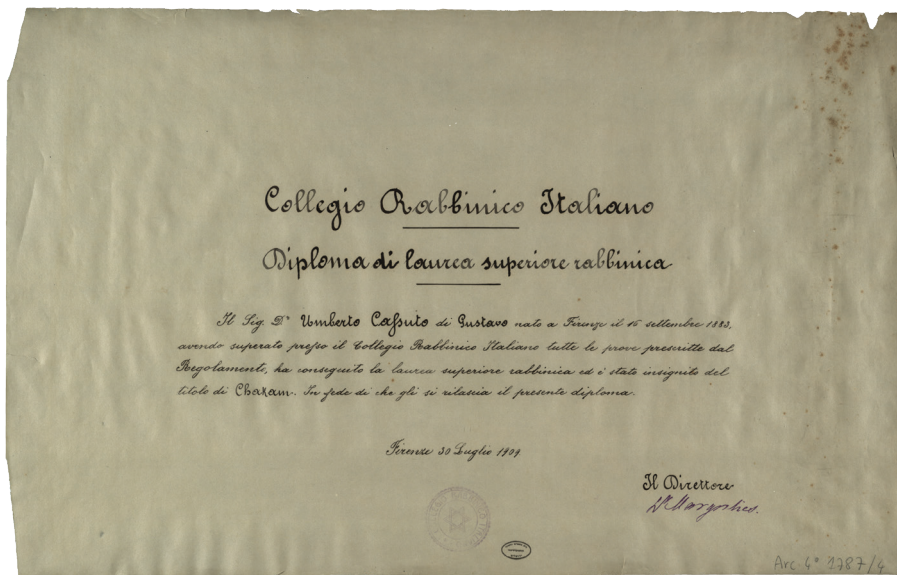 Collegio Rabbinico Italiano
Diploma di laurea superiore rabbinica
Il Sig. Dr Umberto Cassuto di Gustavo nato a Firenze il 16 settembre 1883,
avendo superato presso il Collegio Rabbinico Italiano tutte le prove prescritte dal
Regolamento, ha conseguito la laurea superiore rabbinica ed è stato insignito del
titolo di Chaxam. In fede di che gli si rilascia il presente diploma.
Firenze 30 Luglio 1909
Il Direttore
Arc. 4° 1787/4